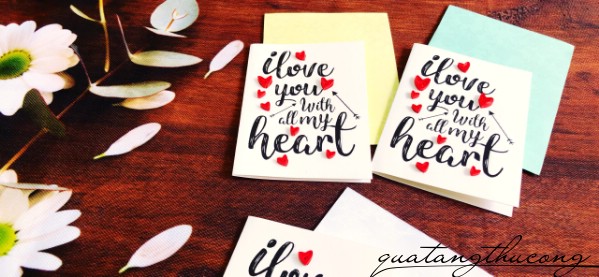 i love
you
with
all my
heart
i love
you
with
all my
heart
i love
quatangthucong